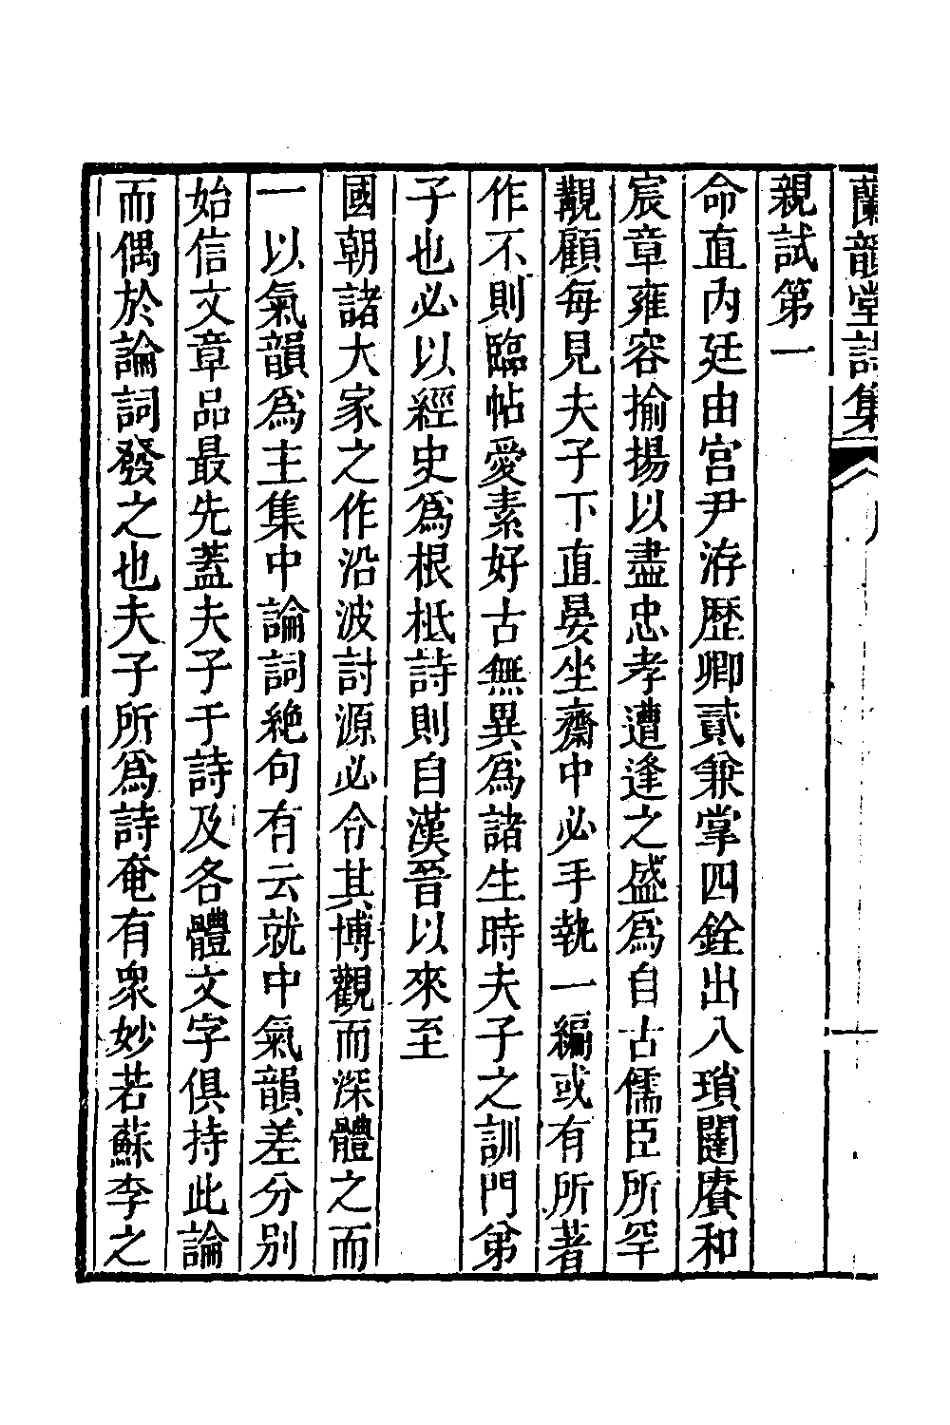 蘭韻堂詩集
親試第一
命直內廷由宮尹洊歷卿貳兼掌四銓出入瑣闥賡和
宸章雍容揄揚以盡忠孝遭逢之盛爲自古儒臣所罕
覯顧每見夫子下直晏坐齋中必手執一編或有所著
作不則臨帖愛素好古無異爲諸生時夫子之訓門弟
子也必以經史爲根柢詩則自漢晉以來至
國朝諸大家之作沿波討源必合其博觀而深體之而
一以氣韻爲主集中論詞絕句有云就中氣韻差分別
始信文章品最先蓋夫子于詩及各體文字俱持此論
而偶於論詞發之也夫子所爲詩奄有衆妙若蘇李之